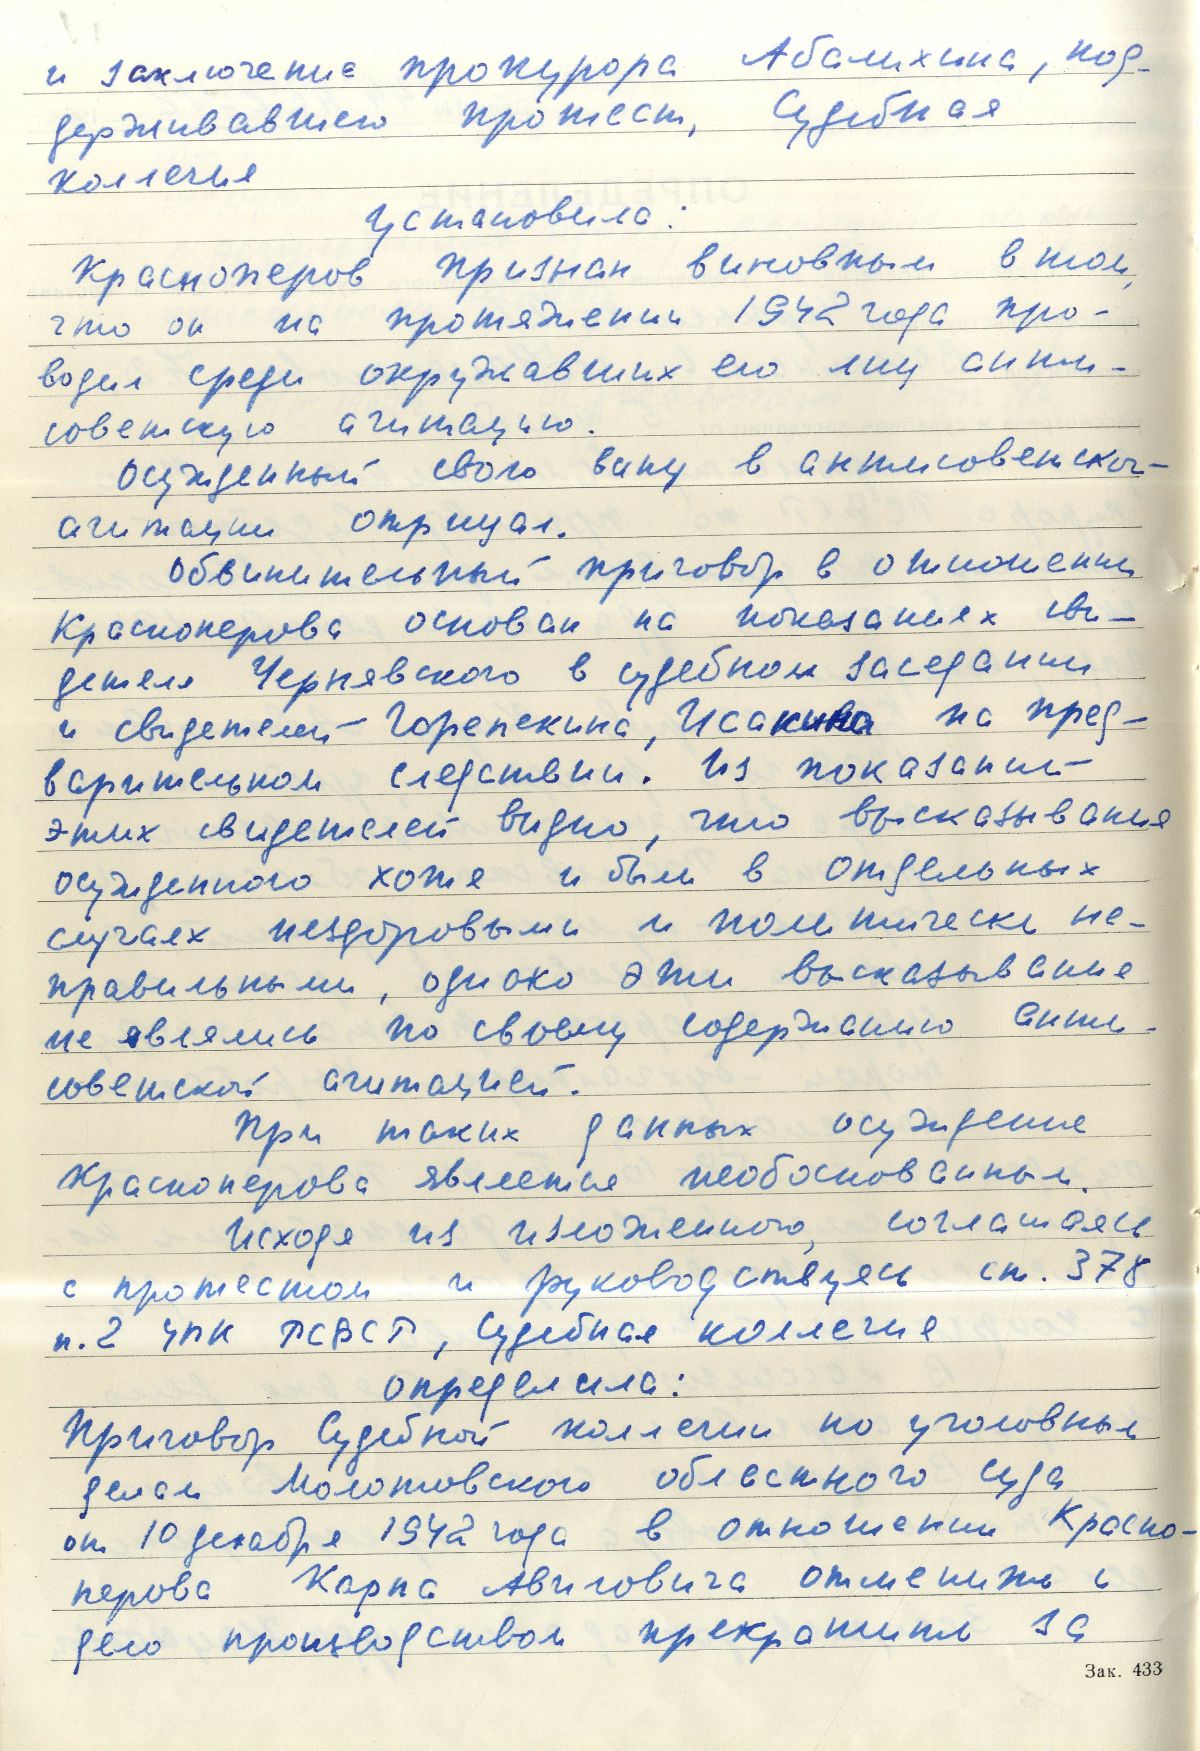 и заключение прокурора Абалихина, под-
держивавшего протест, Судебная
коллегия
установила:
Красноперов признан виновным в том,
что он на протяжении 1942 года про-
водил среди окружавших его лиц анти-
советскую агитацию.
Осужденный свою вину в антисоветской
агитации отрицал.
Обвинительный приговор в отношении
Красноперова основан на показаниях сви-
детеля Чернявского в судебном заседании
и свидетелей Горепекина, Исакина на пред-
варительном следствии. Из показаний
этих свидетелей видно, что высказывания
осужденного хотя и были в отдельных
случаях нездоровыми и политически не-
правильными, однако эти высказывания
не являлись по своему содержанию анти-
советской агитацией.
При таких данных осуждение
Красноперова является необоснованным.
Исходя из изложенного, соглашаясь
с протестом и руководствуясь ст. 378
п.2 УПК РСФСР, Судебная коллегия
определила:
Приговор Судебной коллегии по уголовным
делам Молотовского областного суда
от 10 декабря 1942 года в отношении Красно-
перова Карпа отменить и
дело производством прекратить за
Зак. 433